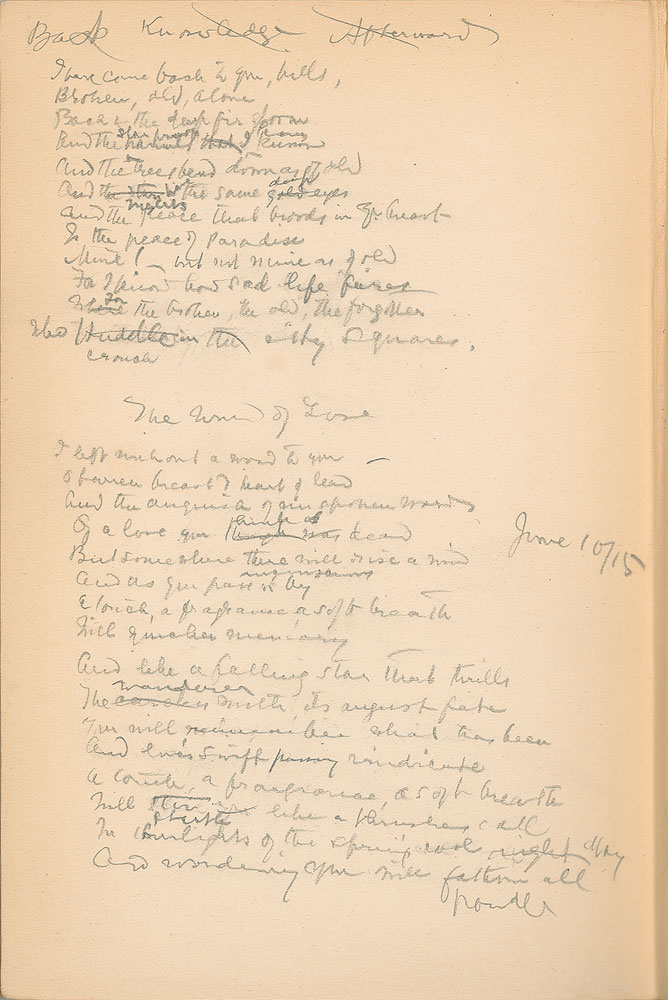 Back Knowledge Afterward
I have come back to you, hills,
Broken, old, alone
Back to the deep fir gloom
And the that I known
And the trees bend down as of old
And the the same gold deep eyes
And the peace that broods in the heart
Is the peace of Paradise
Mine! – but not mine as of old
For I know how sad life fares
Where For the broken, the old, the forgotten
Who Huddle in the city squares.
crouch
The Wind of Love
I left without a word to you –
O barren breast & heart of lead
And the anguish of unspoken words
Of a love you think was dead
June 10/15
But somewhere there will rise a wind
And as you pass by
A touch, a fragrance a soft breath
Will quicken memory
And like a falling star that thrills
wanderer
The careless with its august fate
You will remember what has been
And love's swift passing vindicate
A touch, a fragrance, a soft breath
Will stir like a thrushes call
startle
In twilights of the spring cool night
And wondering you will fathom all